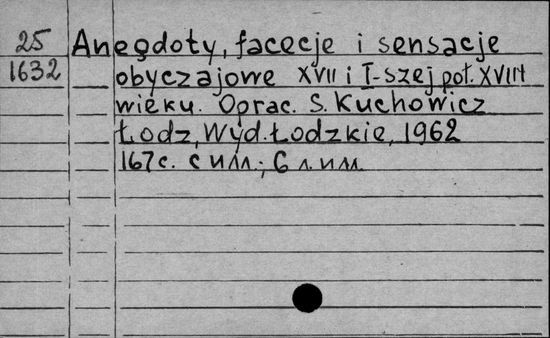 25 Anegdoty, facecje i sensacje
1632 obyczajowe XVII i I-szej poł. XVIII
wieku. Oprac. S. Kuchowicz
Łodz, Wyd. Łodzkie, 1962
167 с. с илл.; 6 л. илл.